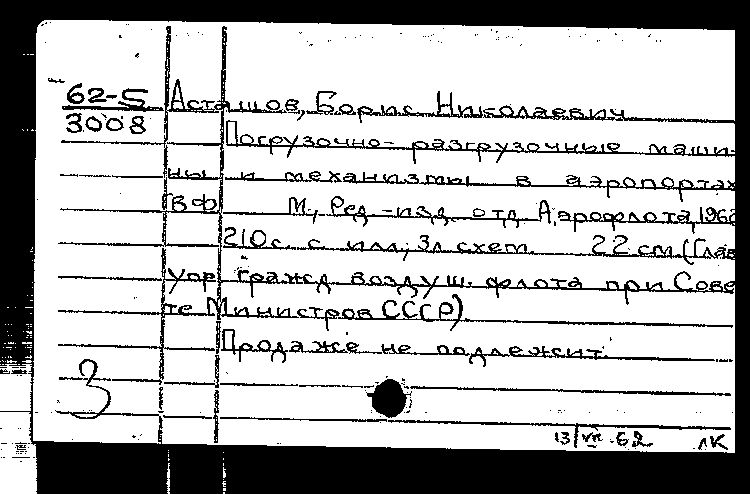 62-5
3008
Асташов, Борис Николаевич
Погрузочно-разгрузочные маши-
ны и механизмы в аэропортах
ГВФ М., Ред.-изд. отд. Аэрофлота, 1962
210 с. с илл.; 3 л. схем. 22 см. (Глав
упр. гражд. воздуш. флота при Сове
те Министров СССР)
Продаже не подлежит.
3
13/VII.62 лк